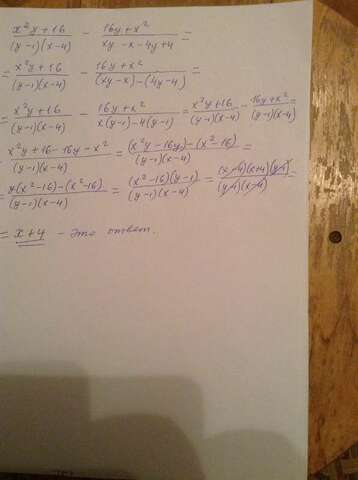 (x²y+16)/((y-1)(x-4)) - (16y+x²)/(xy-x-4y+4) =
= (x²y+16)/((y-1)(x-4)) - (16y+x²)/((xy-x)-(4y-4)) =
= (x²y+16)/((y-1)(x-4)) - (16y+x²)/(x(y-1)-4(y-1)) = (x²y+16)/((y-1)(x-4)) - (16y+x²)/((y-1)(x-4)) =
(x²y+16-16y-x²)/((y-1)(x-4)) = ((x²y-16y)-(x²-16))/((y-1)(x-4)) =
= (y(x²-16)-(x²-16))/((y-1)(x-4)) = ((x²-16)(y-1))/((y-1)(x-4)) = ((x-4)(x+4)(y-1))/((y-1)(x-4)) =
= x+4 - это ответ.